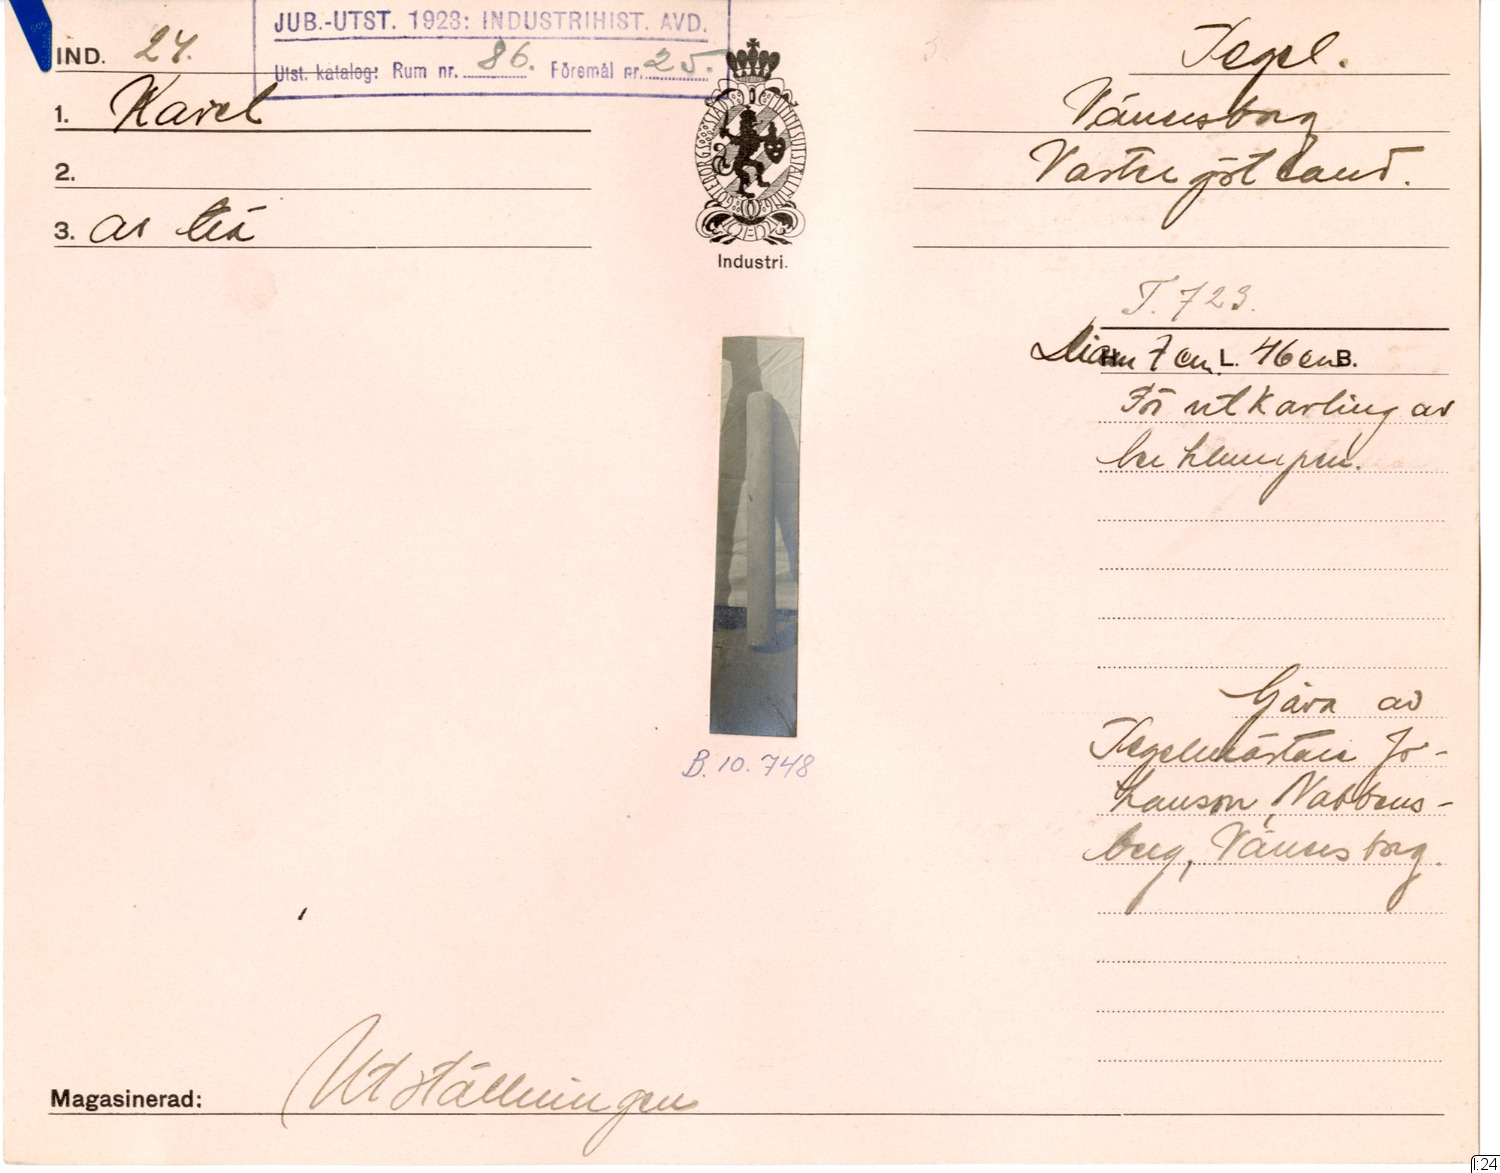 JUB.-UTST. 1923: INDUSTRIHIST. AVD.
Utst. katalog: Rum nr. 86. Föremål nr. 25.
IND. 24.
1. Kavel
2.
3. av trä
Industri.
Tegel.
Vänersborg
Västergötland.
T. 723.
Diam 7 cm. L. 46 cm B.
För utkavling av
lerklumpen.
Gåva av
Tegelmästare Jo-
hanson, Nabbens-
berg, Vänersborg.
B. 10. 748
Magasinerad: Utställningen
I:24